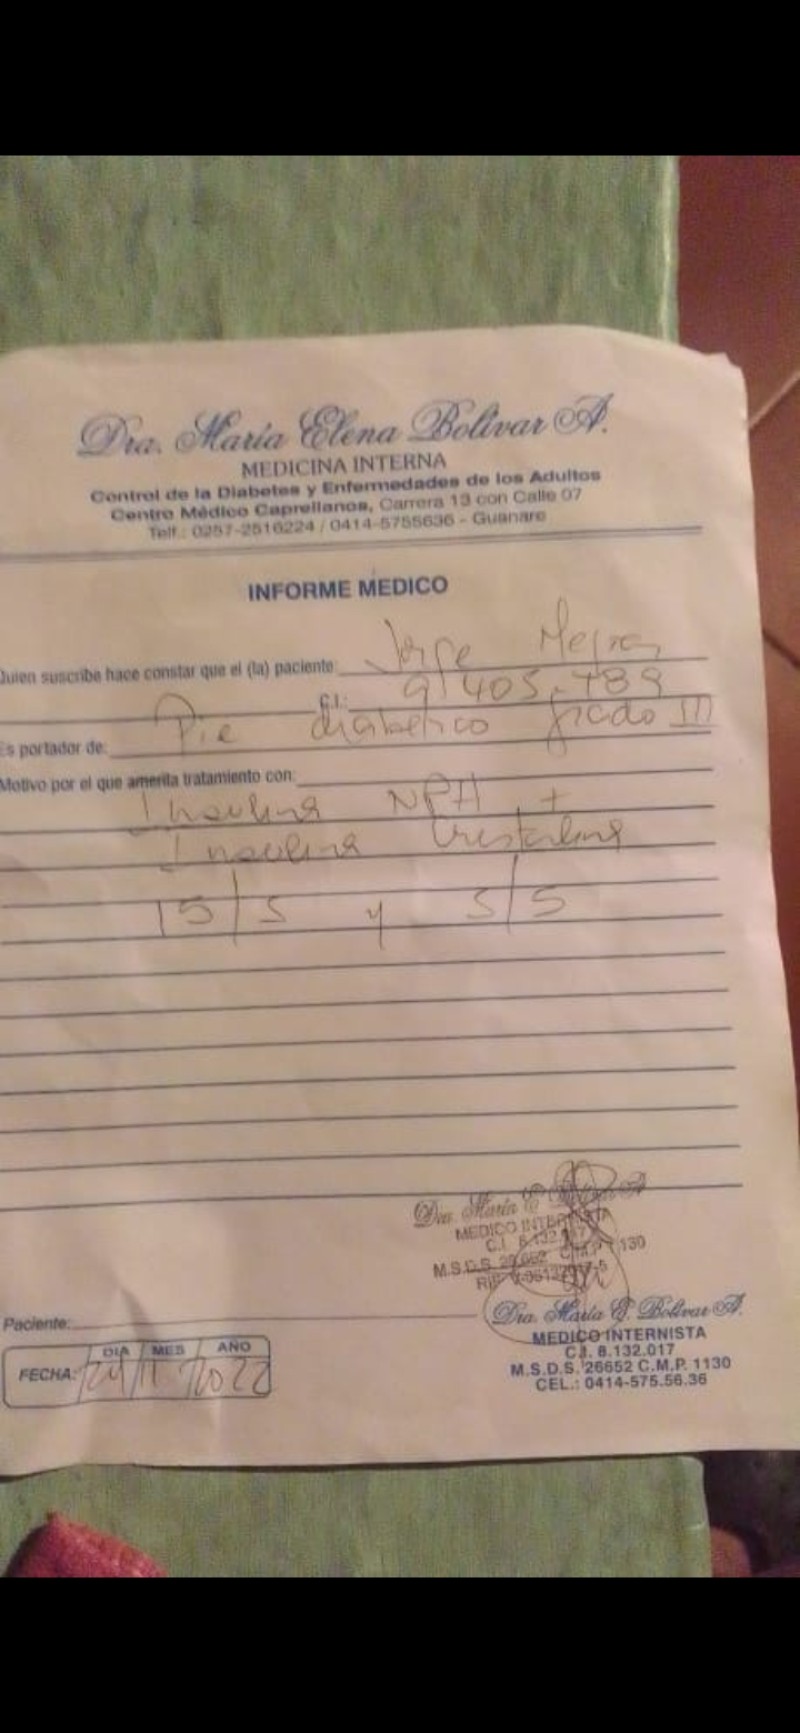 Dra. María Elena Bolívar A.
MEDICINA INTERNA
Control de la Diabetes y Enfermedades de los Adultos
Centro Médico Caprellanos, Carrera 13 con Calle 07
Telf.: 0257-2516224 / 0414-5755636 - Guanare
INFORME MEDICO
Quien suscribe hace constar que el (la) paciente: Jorge
C.I.: 9.405.789
Es portador de: Pie diabetico grado III
Motivo por el que amerita tratamiento con:
Insulina NPH +
Insulina cristalina
15/5 y 5/5
Dra. María E. Bolívar A
MEDICO INTERNISTA
C.I. 8.132.017
M.S.D.S. 26652 C.M.P. 1130
Paciente:
Dra. María E. Bolívar A.
MEDICO INTERNISTA
C.I. 8.132.017
M.S.D.S. 26652 C.M.P. 1130
CEL.: 0414-575.56.36
DIA / MES / AÑO
FECHA: 24/11/2022